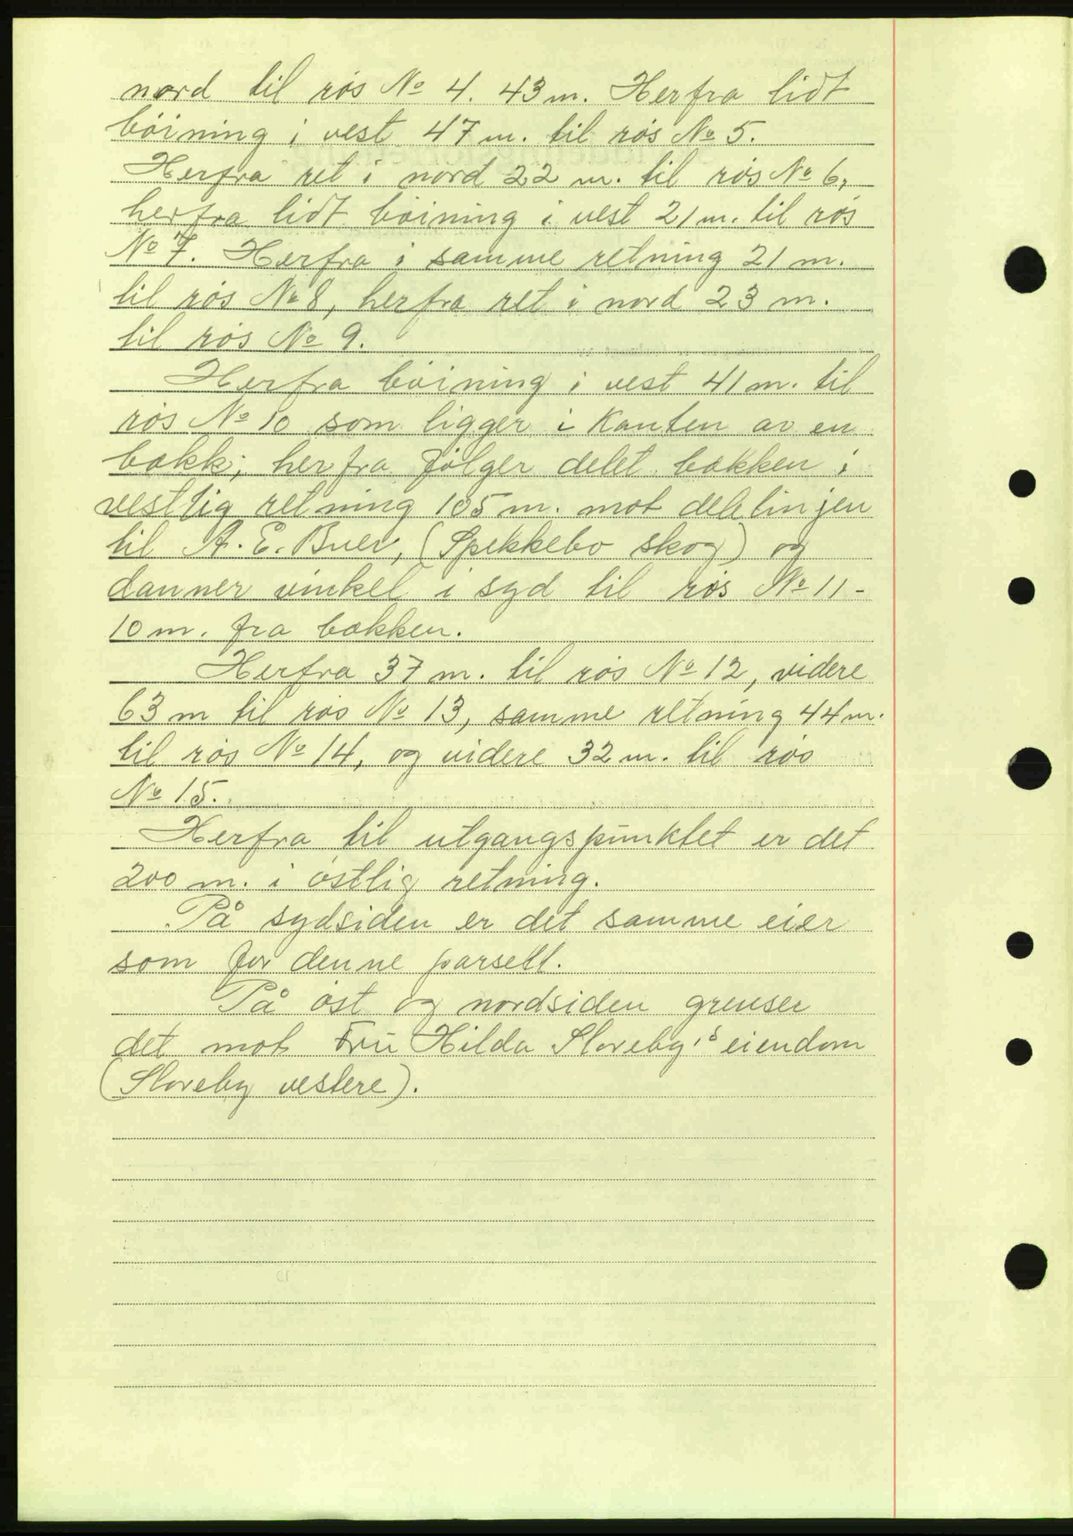 nord til rös № 4. 43 m. Herfra lidt
böining i vest 47 m. til rös № 5.
Herfra ret i nord 22 m. til rös № 6,
herfra lidt böining i vest 21 m. til rös
№ 7. Herfra i samme retning 21 m.
til rös № 8, herfra ret i nord 23 m.
til rös № 9.
Herfra böining i vest 41 m. til
rös № 10 som ligger i Kanten av en
bækk; herfra følger delet bækken i
vestlig retning 105 m. mot dellinjen
til A. E. Buer, (Spekkebo skog) og
danner vinkel i syd til rös № 11 -
10 m. fra bækken.
Herfra 37 m. til rös № 12, videre
63 m til rös № 13, samme retning 44 m.
til rös № 14, og videre 32 m. til rös
№ 15.
Herfra til utgangspünktet er det
200 m. i östlig retning.
På sydsiden er det samme eier
som for denne parsell.
På öst og nordsiden grenser
det mot Frü Hilda Sloreby's eiendom
(Sloreby vestere).